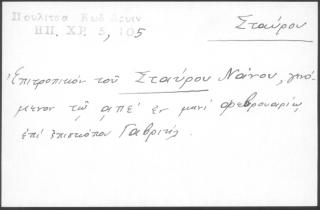 Πουλίτσα Κωδ. Λειν
ΗΠ. ΧΡ. 5, 105
Σταύρου
Ἐπιτροπικὸν τοῦ Σταύρου Νάνου, γενό-
μενον τῷ αψπέ ἐν μηνὶ φεβρουαρίῳ
ἐπὶ ἐπισκόπου Γαβριήλ.